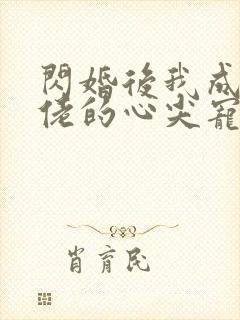 閃婚後我成
佬的心尖寵
肖育民